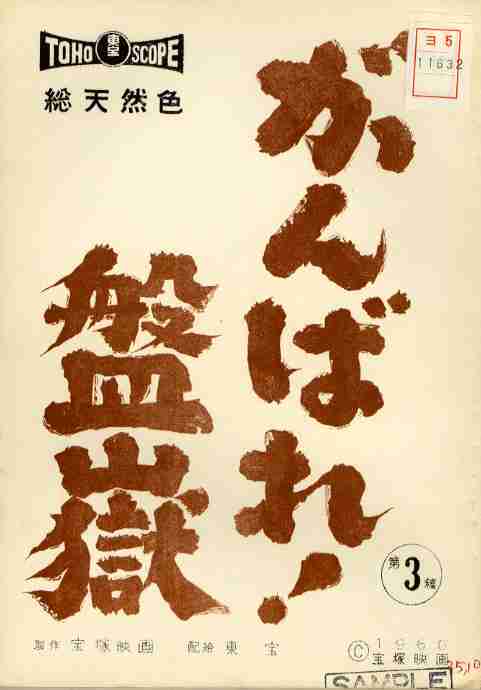 TOHO 東宝 SCOPE
総天然色
ヨ5
11632
がんばれ!
盤嶽
第3稿
製作 宝塚映画 配給 東宝
© 1960
宝塚映画
SAMPLE